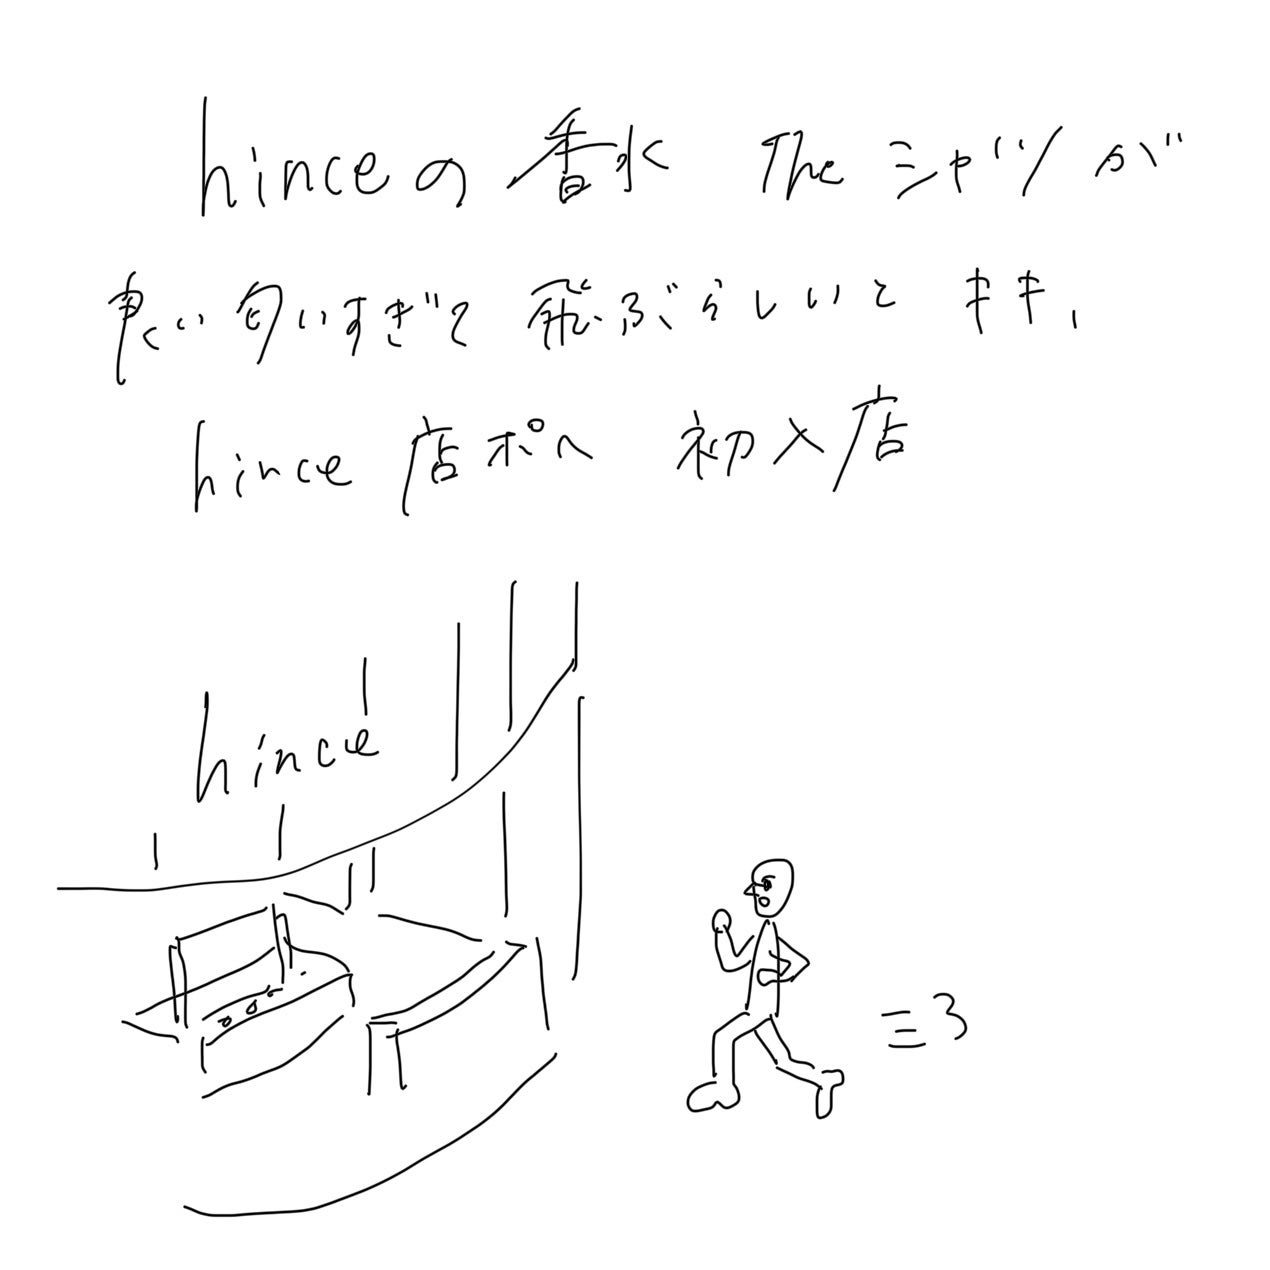 hinceの香水 The シャツが
良い匂いすぎて飛ぶらしいとキキ、
hince 店ポへ 初入店
hince